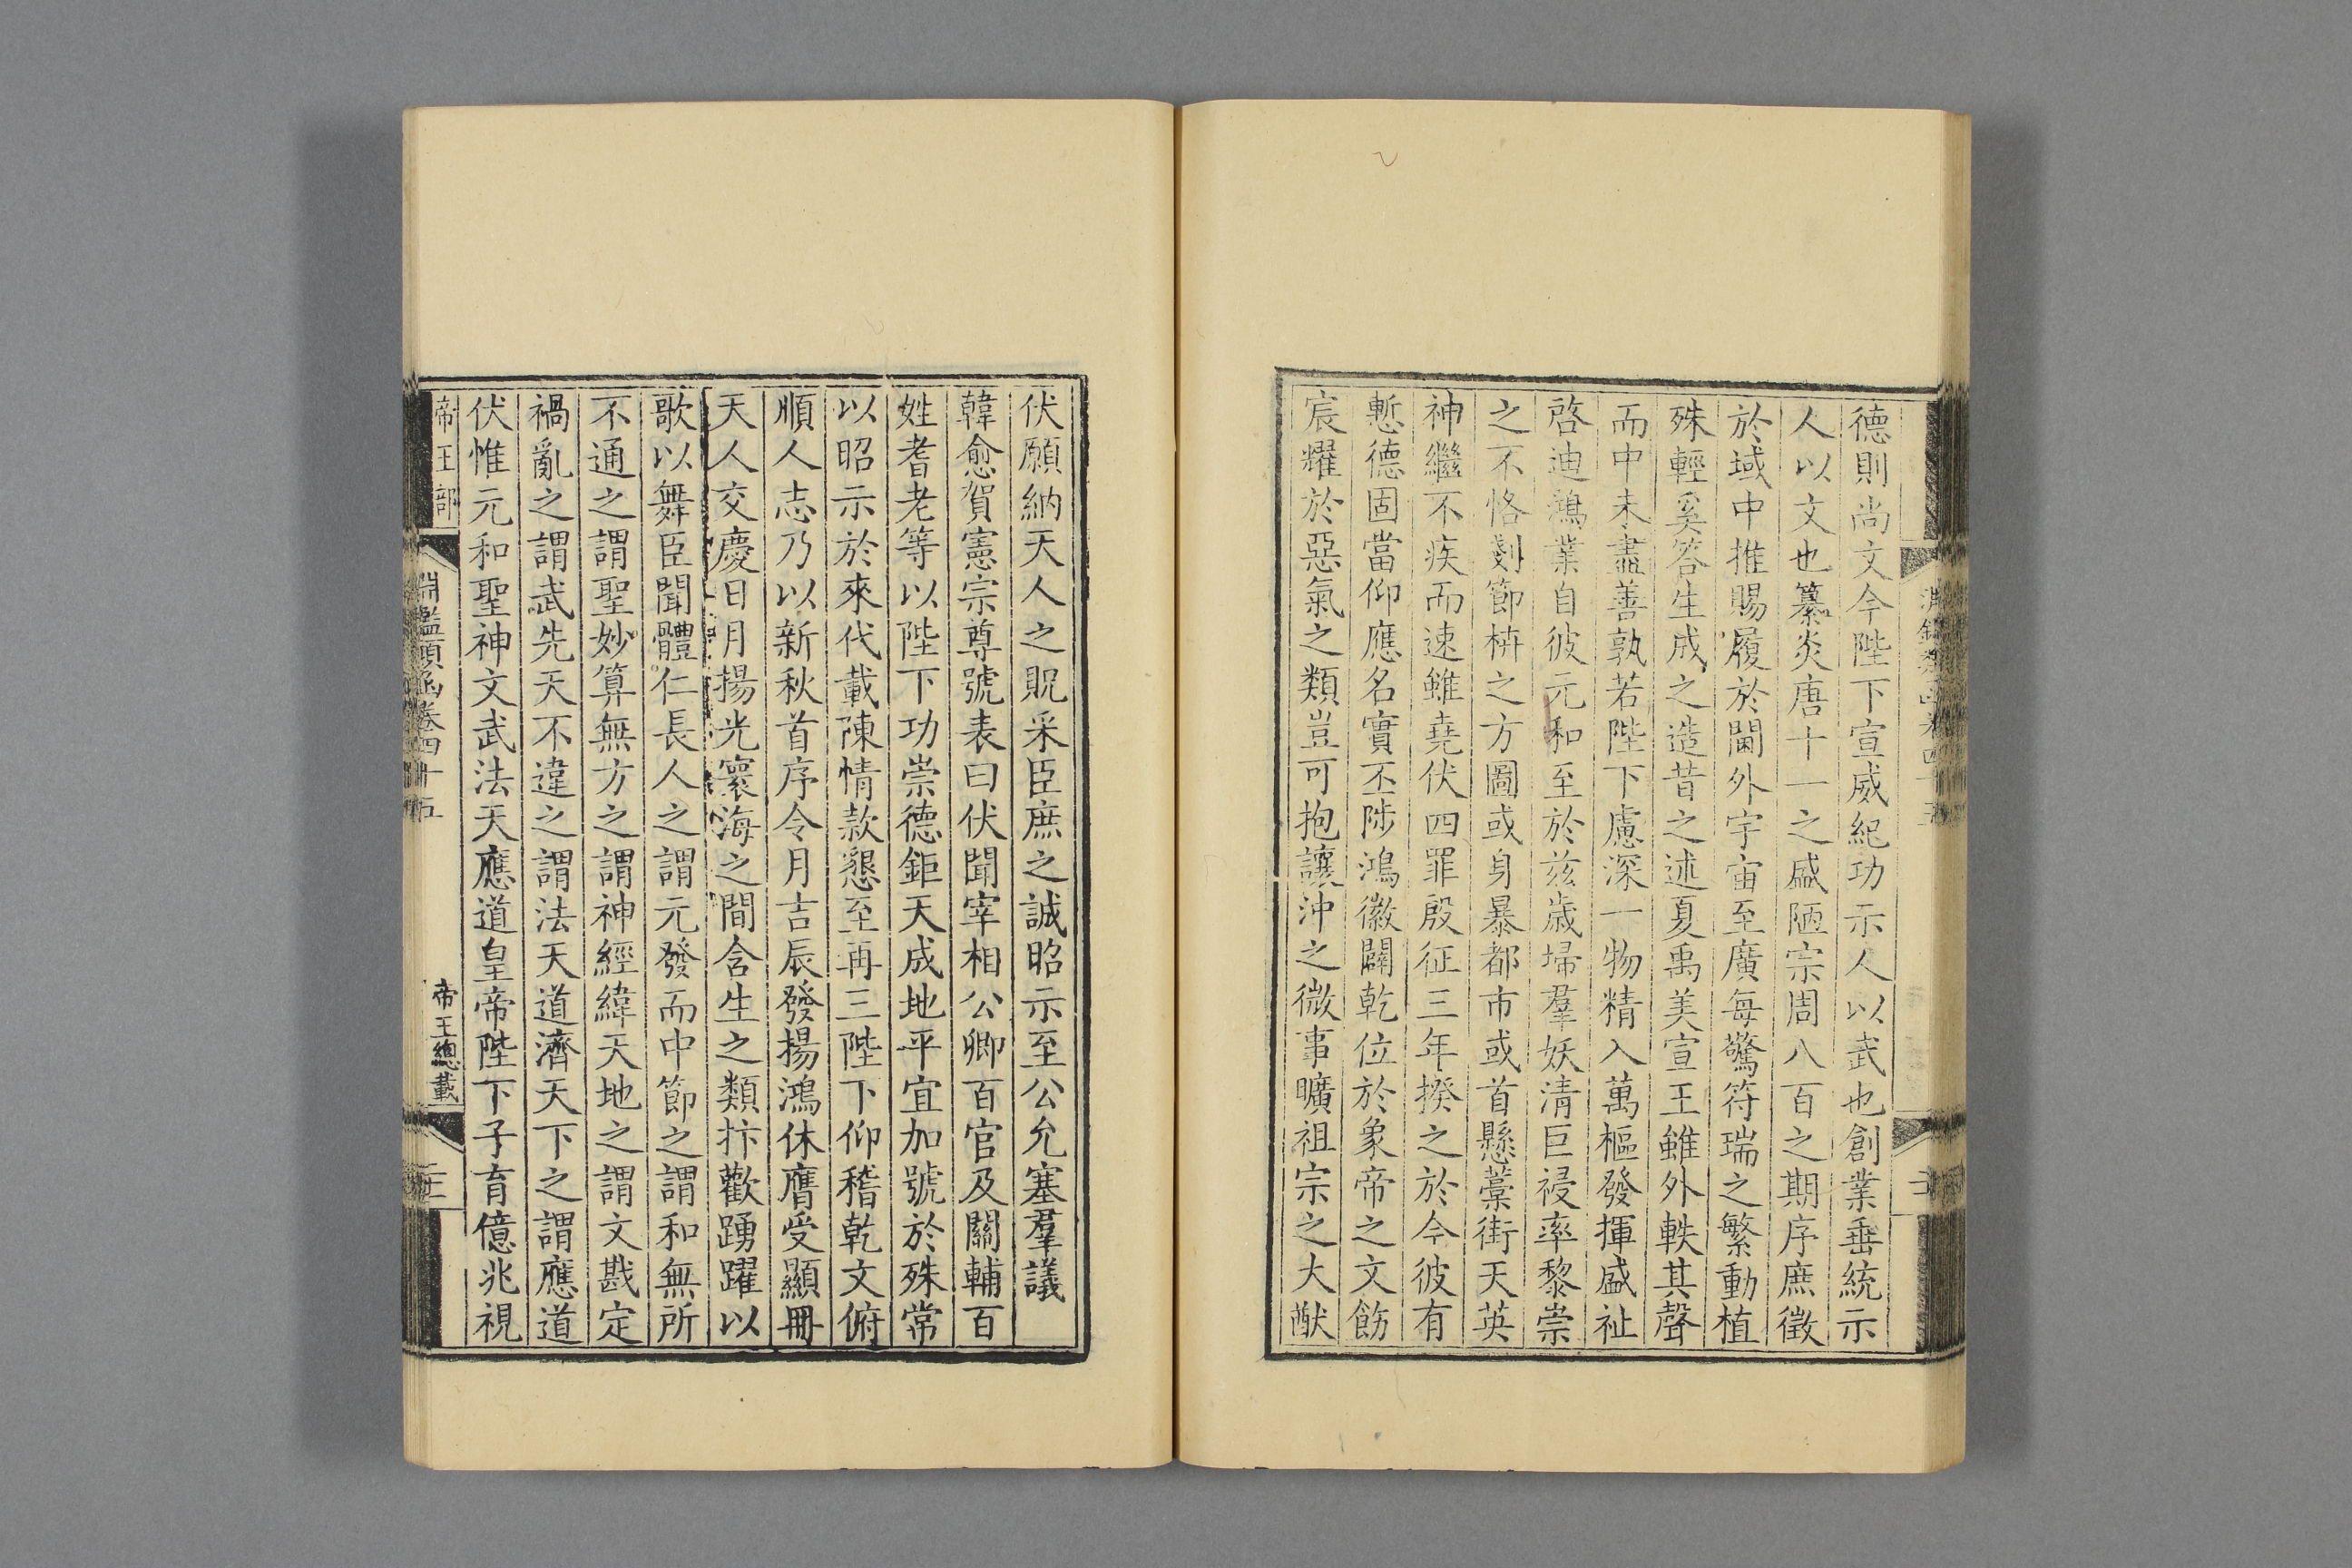 德則尚文今陛下宣威紀功示人以武也創業垂統示
人以文也纂炎唐十一之盛陋宗周八百之期序庶徵
於域中推賜履於閫外宇宙至廣每驚符瑞之繁動植
殊輕奚答生成之造昔之述夏禹美宣王雖外軼其聲
而中未盡善孰若陛下慮深一物精入萬樞發揮盛祉
啓迪鴻業自彼元和至於茲歲埽羣妖清巨祲率黎崇
之不恪剗節梼之方圖或身暴都市或首懸藁街天英
神繼不疾而速雖堯伏四罪殷征三年揆之於今彼有
慙德固當仰應名實丕陟鴻徽闢乾位於象帝之文飭
宸耀於惡氣之類豈可抱讓沖之微事曠祖宗之大猷
伏願納天人之貺采臣庶之誠昭示至公允塞羣議
韓愈賀憲宗尊號表曰伏聞宰相公卿百官及關輔百
姓耆老等以陛下功崇德鉅天成地平宜加號於殊常
以昭示於來代載陳情款懇至再三陛下仰稽乾文俯
順人志乃以新秋首序令月吉辰發揚鴻休膺受顯冊
天人交慶日月揚光寰海之間含生之類抃歡踴躍以
歌以舞臣聞體仁長人之謂元發而中節之謂和無所
不通之謂聖妙算無方之謂神經緯天地之謂文戡定
禍亂之謂武先天不違之謂法天道濟天下之謂應道
伏惟元和聖神文武法天應道皇帝陛下子育億兆視
帝王部
淵鑑類函卷四十五
帝王總載